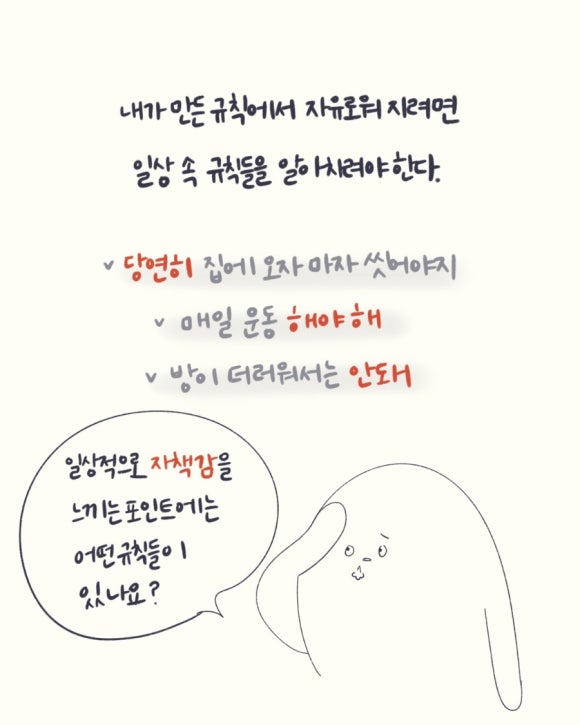 내가 만든 규칙에서 자유로워 지려면
일상 속 규칙들을 알아차려야한다.
v 당연히 집에 오자 마자 씻어야지
v 매일 운동 해야 해
v 방이 더러워서는 안돼
일상적으로 자책감을
느끼는 포인트에는
어떤 규칙들이
있나요?